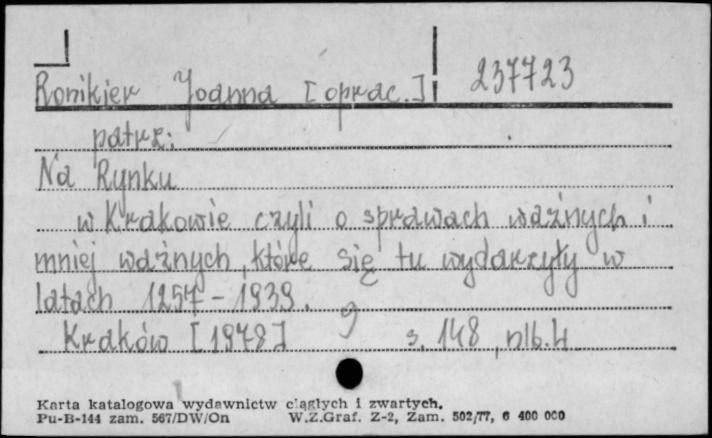 Ronikier Joanna [oprac.] 237723
patrz:
Na Rynku
w Krakowie czyli o sprawach ważnych i
mniej ważnych, które się tu wydarzyły w
latach 1257 - 1939.
Kraków [1978] s. 148, nlb. 4
Karta katalogowa wydawnictw ciągłych i zwartych.
Pu-B-144 zam. 567/DW/On W.Z.Graf. Z-2, Zam. 502/77, 6 400 000